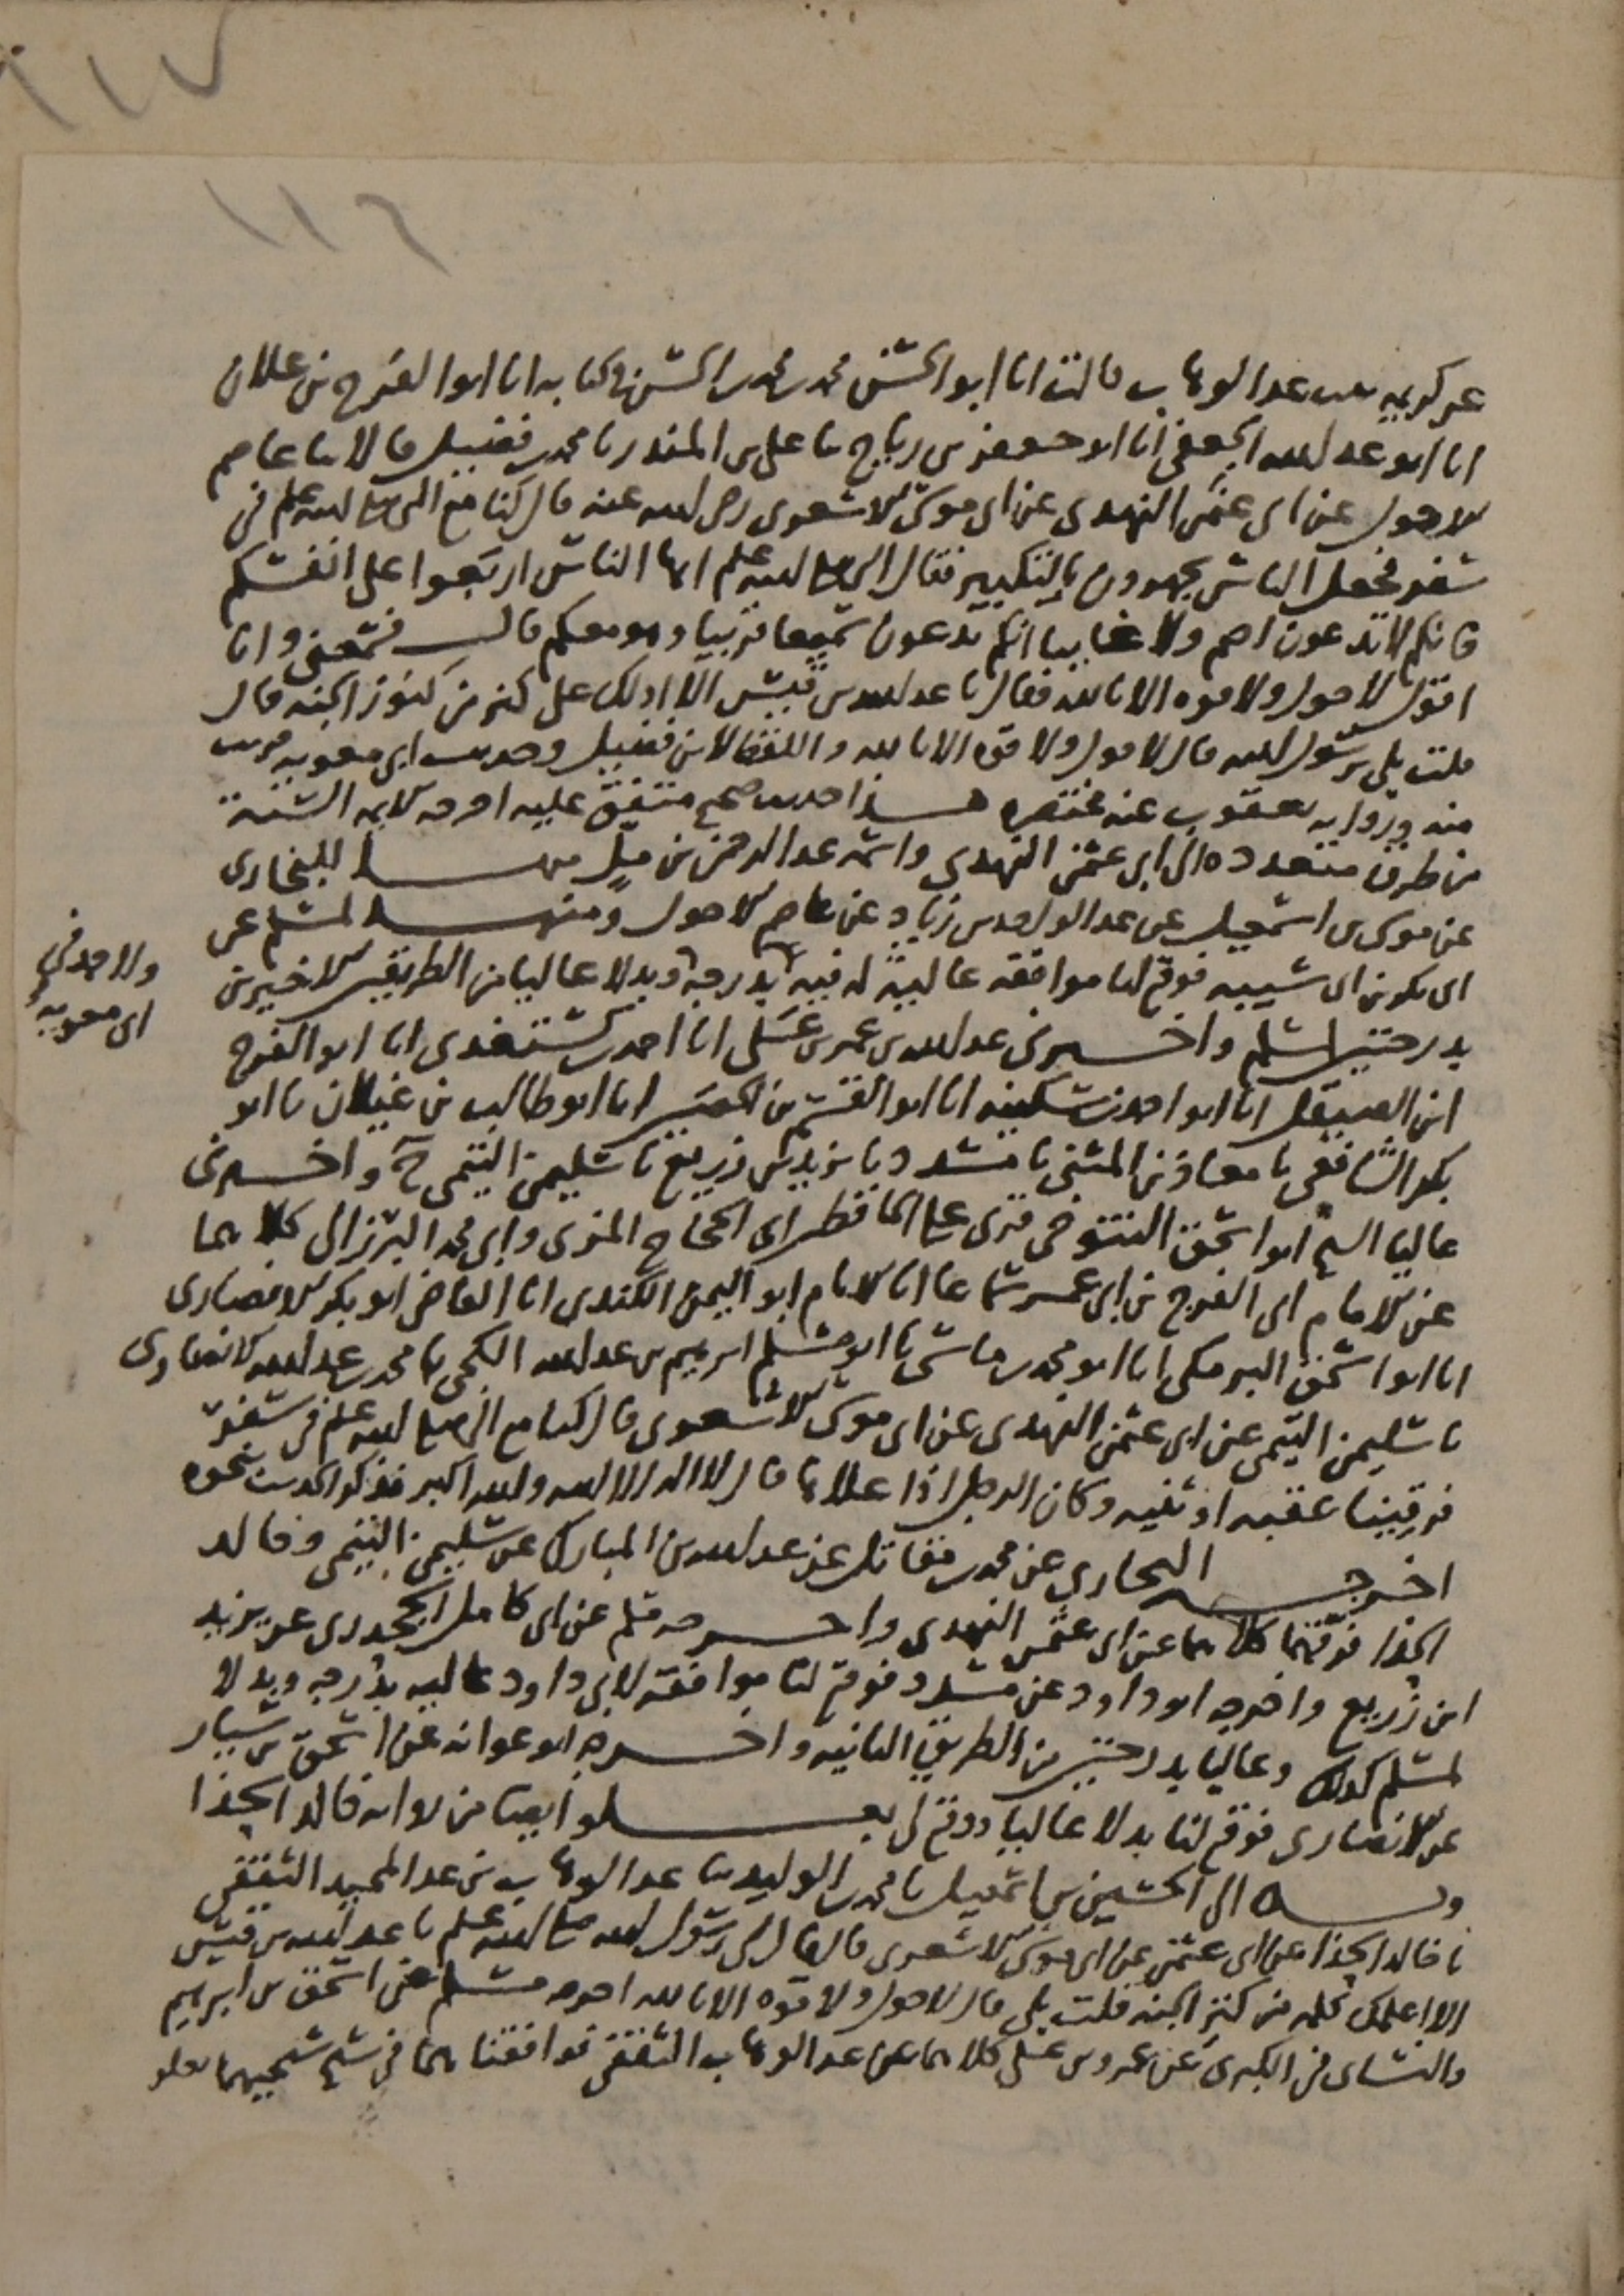 ١١٧
١١٦
عن كريمه بنت عبد الوهاب قالت انا ابو الحسن محمد بن محمد بن الحسن في كتابه انا ابو الفرج بن علان
انا ابو عبد الله الجعفي انا ابو جعفر بن رباح نا علي بن المنذر نا محمد بن فضيل قالا نا عاصم
الاحول عن ابي عثمن النهدي عن ابي موسى الاشعري رضي الله عنه قال كنا مع النبي صلى الله عليه وسلم في
سفر فجعل الناس يجهرون بالتكبير فقال النبي صلى الله عليه وسلم ايها الناس اربعوا على انفسكم
فانكم لا تدعون اصم ولا غايبا انكم تدعون سميعا قريبا وهو معكم قال فسمعني وانا
اقول لا حول ولا قوه الا بالله فقال يا عبد الله بن قيس الا ادلك على كنز من كنوز الجنه قال
قلت بلى يرسول الله قال لا حول ولا قوه الا بالله واللفظ لابن فضيل وحديث ابي معويه قريب
منه ورواية يعقوب عنه مختصره هذا حديث صحيح متفق عليه اخرجه الايمه الستة
من طرق متعدده الى ابي عثمن النهدي واسمه عبد الرحمن بن مل منها للبخاري
عن موسى بن اسمعيل عن عبد الواحد بن زياد عن عاصم الاحول ومنها لمسلم عن
ابي بكر بن ابي شيبه فوقع لنا موافقه عالية له فيه بدرجه وبدلا عاليا من الطريقين الاخيرين
ولاحمد في
ابي معويه
بدرجتين لمسلم واخبرني عبد الله بن عمر بن علي انا احمد بن كشتغدي انا ابو الفرج
ابن الصيقل انا ابو احمد بن سكينه انا ابو القسم بن الحصين انا ابو طالب بن غيلان نا ابو
بكر الشافعي نا معاذ بن المثنى نا مسدد نا يزيد بن زريع نا سليمن التيمي ح واخبرني
عاليا الشيخ ابو اسحق التنوخي قرئ على الحافظين ابي الحجاج المزي وابي محمد البرزالي كلاهما
عن الامام ابي الفرج بن ابي عمر سماعا انا الامام ابو اليمن الكندي انا القاضي ابو بكر الانصاري
انا ابو اسحق البرمكي انا ابو محمد بن ماسي نا ابو مسلم ابرهيم بن عبد الله الكجي نا محمد بن عبد الله الانصاري
نا سليمن التيمي عن ابي عثمن النهدي عن ابي موسى الاشعري قال كنا مع النبي صلى الله عليه وسلم في سفر
فرقينا عقبه او ثنيه وكان الرجل اذا علاها قال لا اله الا الله والله اكبر فذكر الحديث نحوه
اخرجه البخاري عن محمد بن مقاتل عن عبد الله بن المبارك عن سليمن التيمي وخالد
الحذا فرقهما كلاهما عن ابي عثمن النهدي واخرجه مسلم عن ابي كامل الجحدري عن يزيد
ابن زريع واخرجه ابو داود عن مسدد فوقع لنا موافقة لابي داود عاليه بدرجه وبدلا
لمسلم كذلك وعاليا بدرجتين من الطريق الثانيه واخرجه ابو عوانه عن اسحق بن سيار
عن الانصاري فوقع لنا بدلا عاليا ووقع لي بعلو ايضا من رواية خالد الحذا
وبه الى الحسين بن اسمعيل نا محمد بن الوليد نا عبد الوهاب بن عبد المجيد الثقفي
نا خالد الحذا عن ابي عثمن عن ابي موسى الاشعري قال قال لي رسول الله صلى الله عليه وسلم يا عبد الله بن قيس
الا اعلمك كلمه من كنز الجنه قلت بلى قال لا حول ولا قوه الا بالله اخرجه مسلم عن اسحق بن ابرهيم
والنسائي في الكبرى عن عمرو بن علي كلاهما عن عبد الوهاب الثقفي فوافقناهما في شيخ شيخيهما بعلو